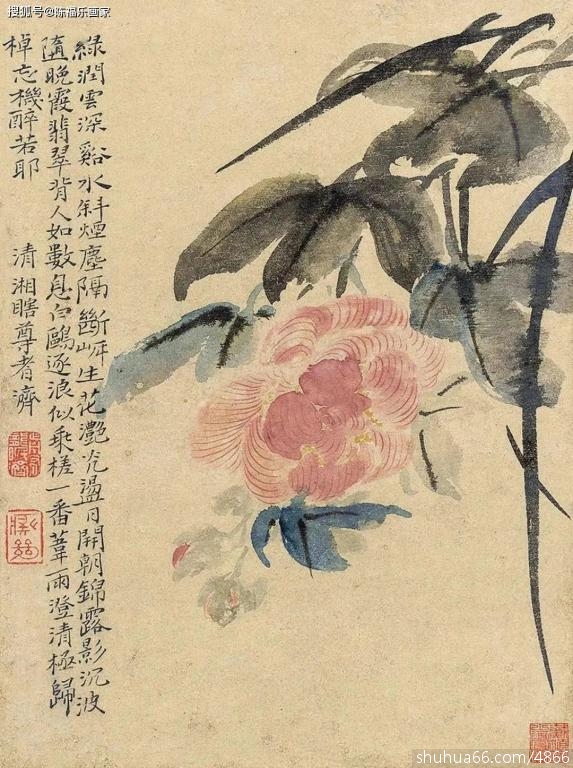 搜狐号@陈福乐画家
綠潤雲深谿水斜煙塵隔斷岈生花灔光盪日開朝錦露影沉波
隨晚霞翡翠背人如數息白鷗逐浪似乘槎一番葦雨澄清極歸
棹忘機醉若耶
清湘瞎尊者濟
shuhua66.com/4866